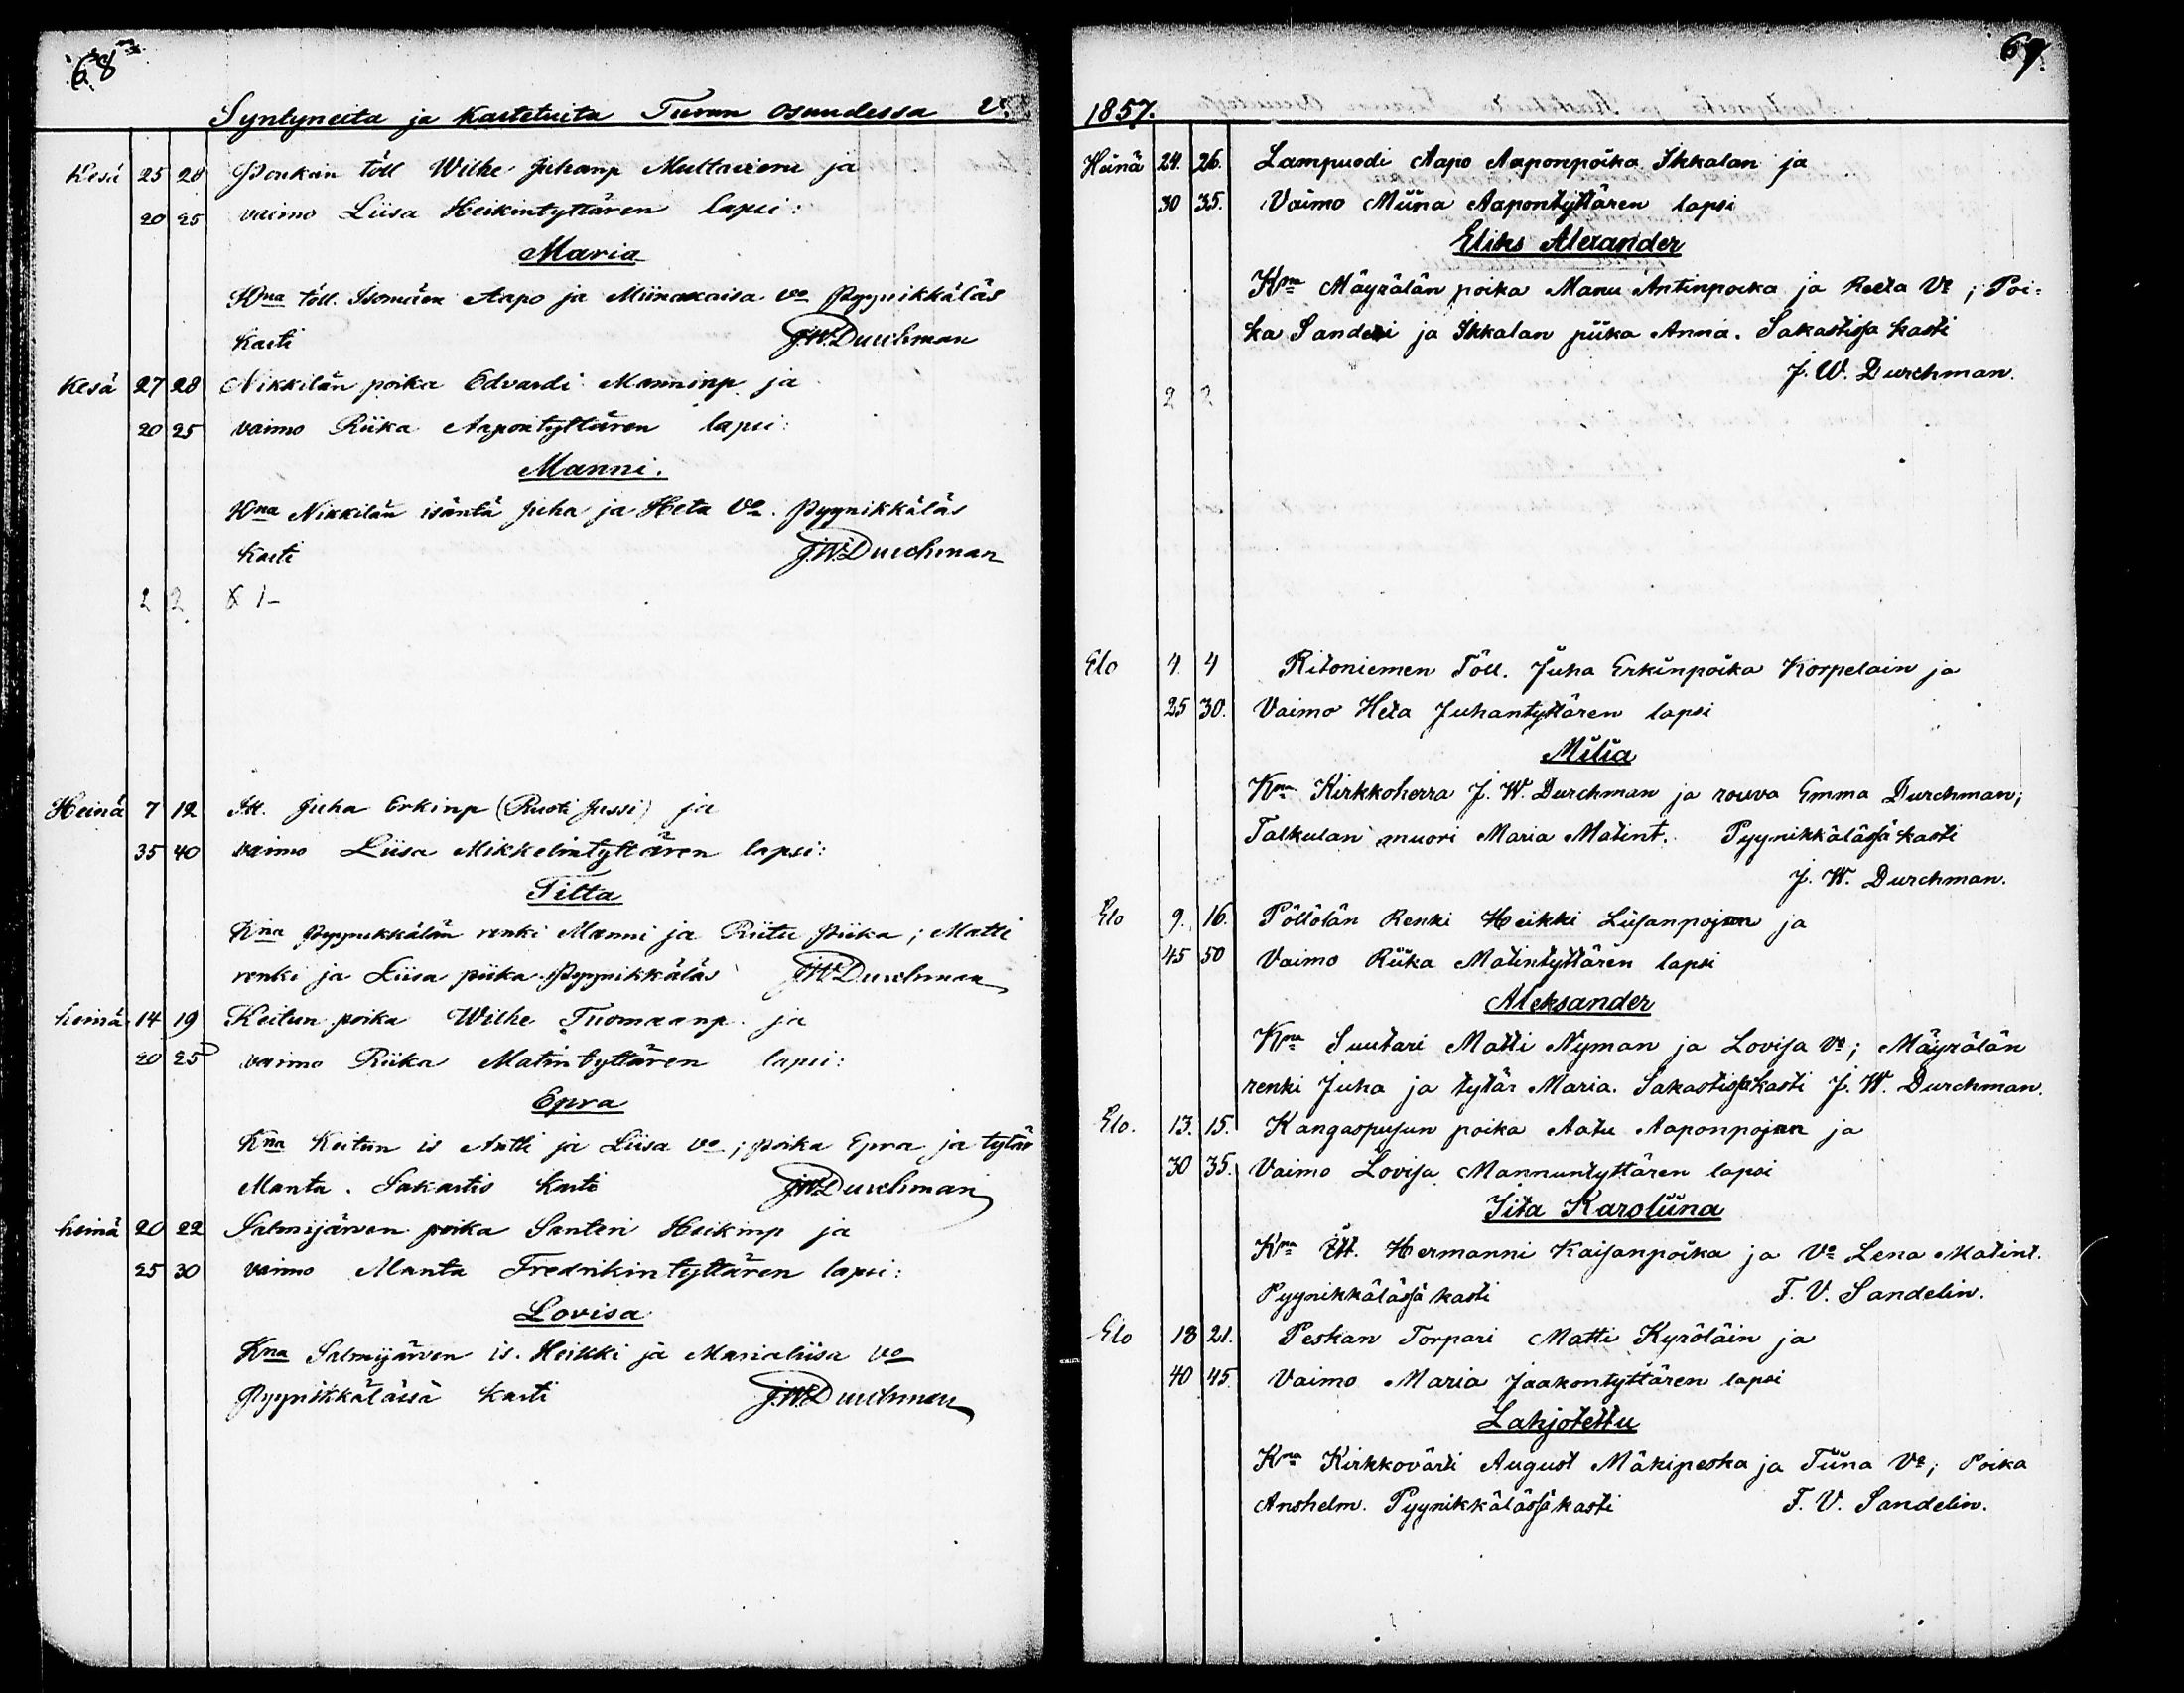 68
Syntyneita ja kastetuita Turun osuudessa V.
Kesä 25 28 Penkan töll Wilhe Juhanp Multavieru ja
20 25 vaimo Liisa Heikintyttären lapsi:
Maria
Kna töll. Isomäen Aapo ja Miinakaisa vo Pyynikkäläs
Kasti J.W.Durchman
Kesä 27 28 Nikkilän poika Edvardi Manninp. ja
20 25 vaimo Riika Aapontyttären lapsi:
Manni.
Kna Nikkilän isäntä Juha ja Heta Vo. Pyynikkäläs
Kasti J.W.Durchman
2 2
Heinä 7 12 Itt. Juha Erkinp (Ruoti Jussi) ja
35 40 vaimo Liisa Mikkelintyttären lapsi:
Tilta
Kna Pyynikkälän renki Manni ja Riitu piika; Matti
renki ja Liisa piika. Pyynikkäläs J.W.Durchman
heinä 14 19 Keitun poika Wilhe Tuomaanp. ja
20 25 vaimo Riika Matintyttären lapsi:
Epra
Kna Keitun is Antti ja Liisa vo; poika Epra ja tytär
Manta. Sakastis Kasti J.W.Durchman
heinä 20 22 Salmijärven poika Santeri Heikinp ja
25 30 vaimo Manta Fredrikintyttären lapsi:
Lovisa
Kna Salmijärven is. Heikki ja Marialiisa vo
Pyynikkälässä Kasti J.W.Durchman
69.
1857.
Heinä 24. 26. Lampuodi Aapo Aaponpoika Ikkalan ja
30 35. Vaimo Miina Aapontyttären lapsi
Eliks Alexander
Kna Mäyrälän poika Manu Antinpoika ja Reeta Vo; Poi=
ka Sanderi ja Ikkalan piika Anna. Sakastissa kasti
J. W. Durchman.
2 2
Elo 4 4 Ritoniemen Töll. Juha Erkinpoika Korpelain ja
25 30. Vaimo Heta Juhantyttären lapsi
Milia
Kna Kirkkoherra J. W. Durchman ja rouva Emma Durchman;
Talkulan muori Maria Matint. Pyynikkälässä kasti
J. W. Durchman.
Elo 9. 16. Pöllölän Renki Heikki Liisanpojan ja
45 50 Vaimo Riika Matintyttären lapsi
Aleksander
Kna Suutari Matti Nyman ja Lovisa vo; Mäyrälän
renki Juha ja tytär Maria. Sakastissa kasti J. W. Durchman.
Elo. 13. 15. Kangaspusun poika Aatu Aaponpojan ja
30 35. Vaimo Lovisa Mannuntyttären lapsi
Iita Karoliina
Kna Itt. Hermanni Kaisanpoika ja Vo Lena Matint.
Pyynikkälässä kasti F. V. Sandelin.
Elo 18 21. Peskan Torpari Matti Kyröläin ja
40 45. Vaimo Maria Jaakontyttären lapsi
Lahjotettu
Kna Kirkkovärti August Mäkipeska ja Tiina Vo; Poika
Anshelm. Pyynikkälässä kasti F. V. Sandelin.